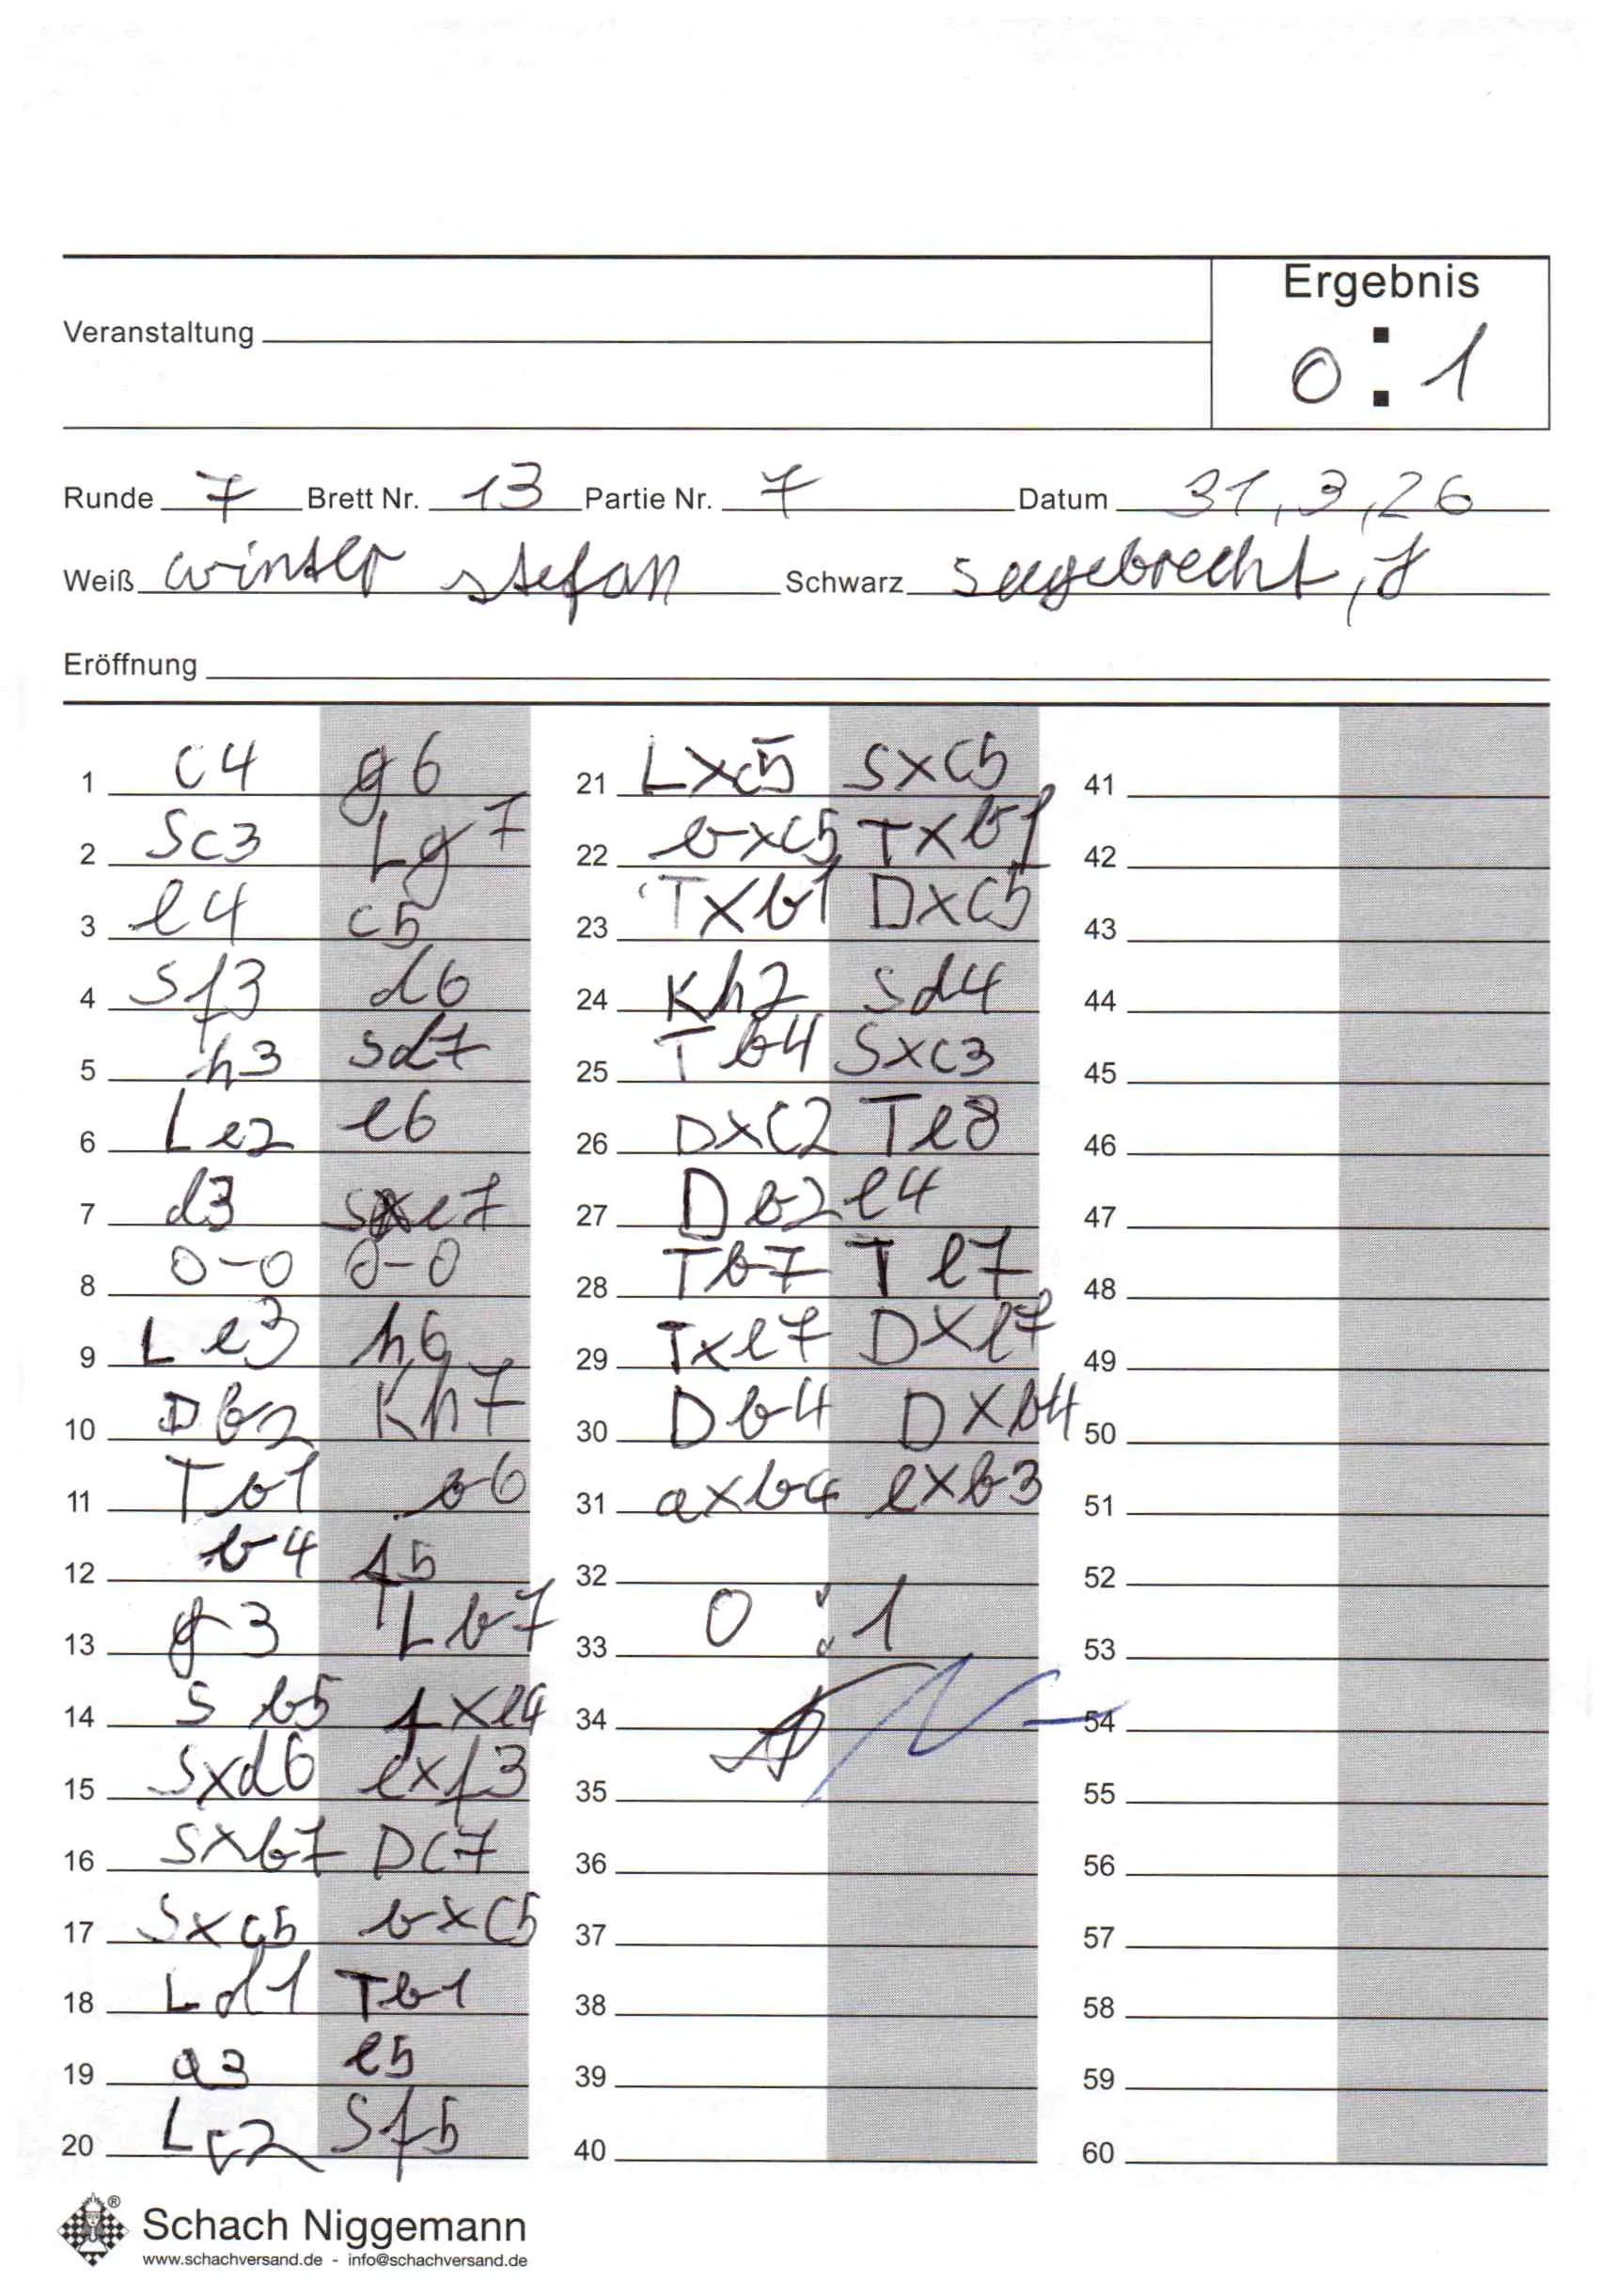 Ergebnis
Veranstaltung
0 : 1
Runde 7 Brett Nr. 13 Partie Nr. 7 Datum 31,3,26
Weiß winter stefan Schwarz sagebrecht, J
Eröffnung
1 c4 g6
2 Sc3 Lg7
3 e4 c5
4 Sf3 d6
5 h3 Sd7
6 Le2 e6
7 d3 Se7
8 0-0 0-0
9 Le3 h6
10 Db2 Kh7
11 Tb1 b6
12 b4 f5
13 g3 Lb7
14 Sb5 fxe4
15 Sxd6 exf3
16 Sxb7 Dc7
17 Sxc5 bxc5
18 Ld1 Tb1
19 a3 e5
20 Lc2 Sf5
21 Lxc5 Sxc5
22 bxc5 Txb1
23 Txb1 Dxc5
24 Kh2 Sd4
25 Tb4 Sxc3
26 Dxc2 Te8
27 Db2 e4
28 Tb7 Te7
29 Txe7 Dxe7
30 Db4 Dxb4
31 axb4 exb3
32
33 0 : 1
34
35
36
37
38
39
40
41
42
43
44
45
46
47
48
49
50
51
52
53
54
55
56
57
58
59
60
Schach Niggemann
www.schachversand.de - info@schachversand.de